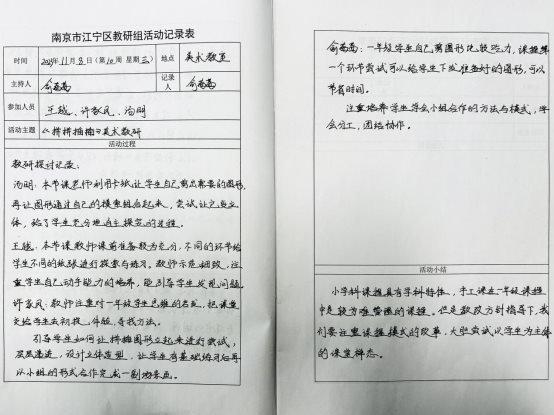 南京市江宁区教研组活动记录表
时间 2023年11月8日(第10周 星期三) 地点 美术教室
主持人 俞茜茜 记录人 俞茜茜
参加人员 王越、许家凤、汤明
活动主题 《拼拼插插》美术教研
活动过程
教研探讨记录:
汤明:本节课老师利用卡纸让学生自己剪出需要的图形,
再让图形通过自己的摸索组合起来,尝试让它变立
体,给了学生充分地自主探究的过程。
王越:本节课教师课前准备较为充分,不同的环节给
学生不同的纸张进行探索与练习。教师示范细致,注
重学生自己动手能力的培养,能引导学生发现问题
许家凤:教师注重对一年级学生思维的启发,把课堂
交给学生去初探,体验,寻找方法。
引导学生如何让拼插图形立起来进行尝试,
层层递进,设计立体造型,让学生有基础练习后再
以小组的形式合作完成一副场景画。
俞茜茜:一年级学生自己剪图形比较吃力,课程第
一个环节尝试可以给学生下发准备好的图形,可以
节省时间。
注重培养学生学会小组合作的方法与模式,学
会分工,团结协作。
活动小结
小学科课程具有学科特性,手工课在一年级课程
中是较为难掌握的课程。但是教改方针指导下,我
们要注重课程模式的改革,大胆尝试以学生为主体
的课堂样态。